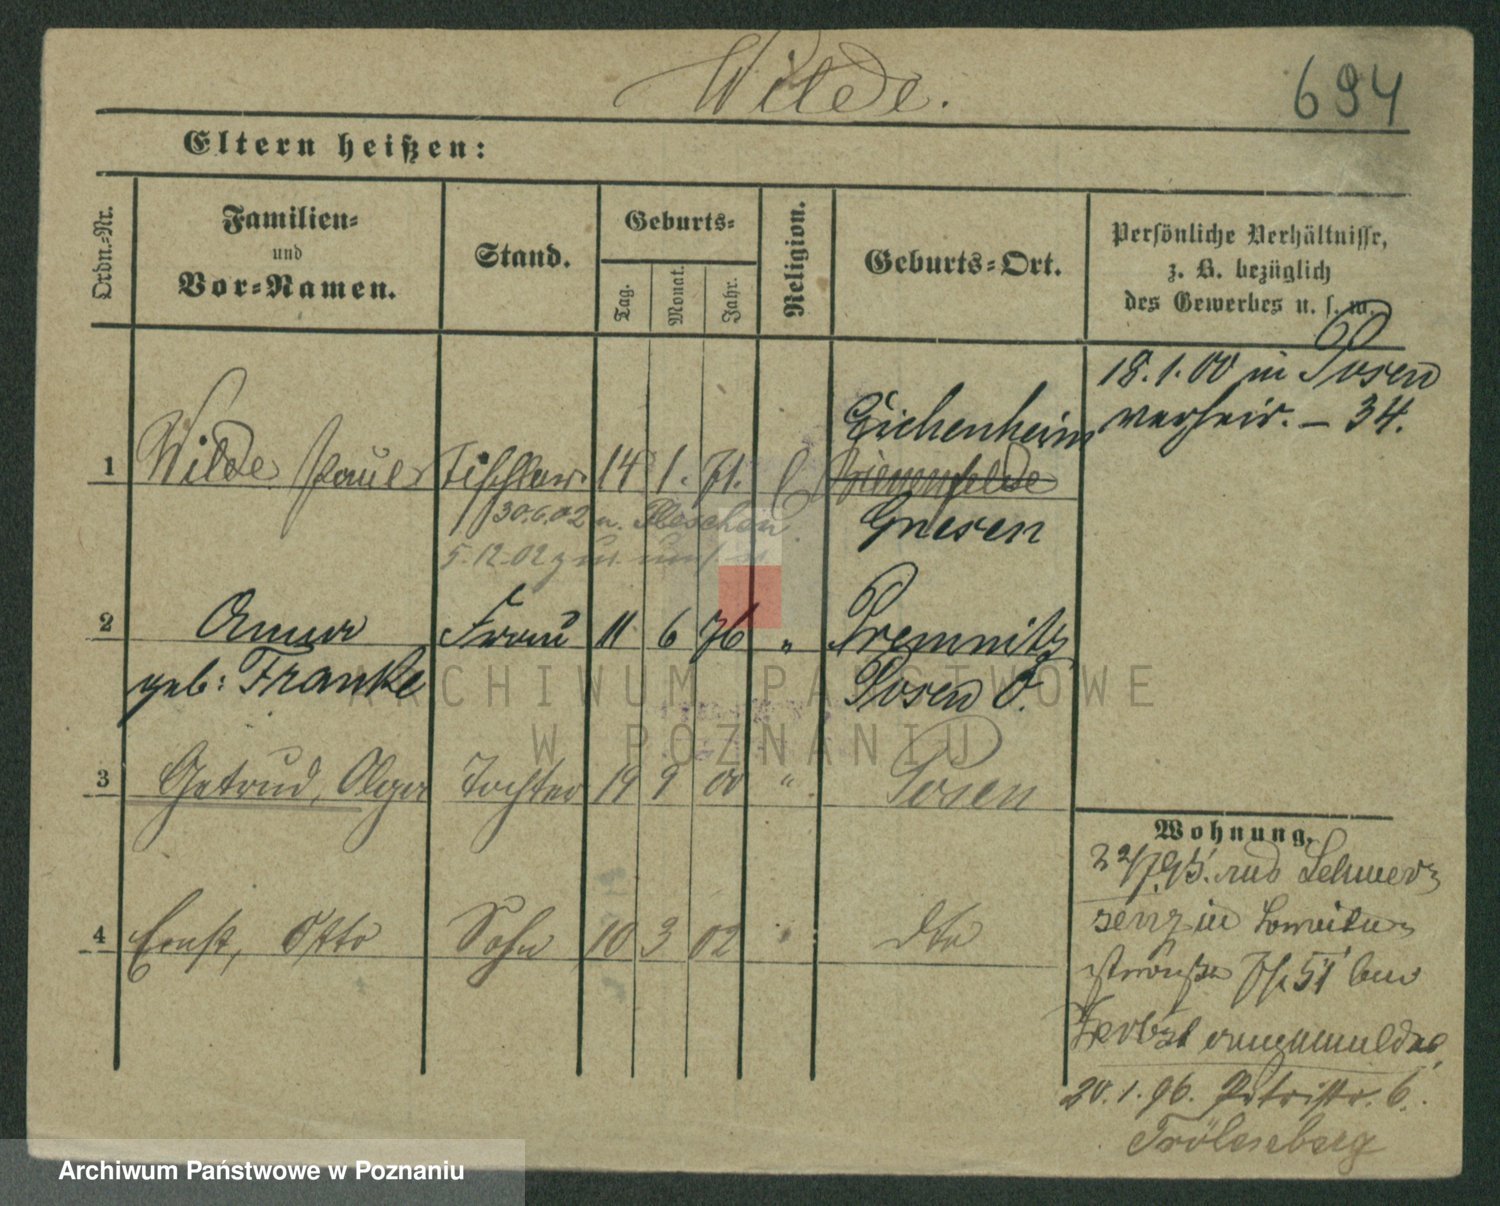 Wilde.
694
Eltern heißen:
Ordn.-Nr.
Familien-
und
Vor-Namen.
Stand.
Geburts-
Tag.
Monat.
Jahr.
Religion.
Geburts-Ort.
Persönliche Verhältnisse,
z. B. bezüglich
des Gewerbes u. s. w.
18.1.00 in Posen
verheir. – 34.
Eichenheim
1 Wilde Paul Tischler 14 1. 71. Bienenfelde
Gnesen
30.6.02 n. Pleschen
5.12.02 zur
2 Anna Frau 11 6 76 " Premnitz
geb: Franke Posen O.
3 Getrud, Olga Tochter 19 9 00 " Posen
4 Ernst, Otto Sohn 10 3 02 dto
Wohnung.
22/7.95. aus
senz in
straße 51 bei
Herbst angemeldet
20.1.96. Petristr. 6.
ARCHIWUM PAŃSTWOWE
W POZNANIU
Archiwum Państwowe w Poznaniu